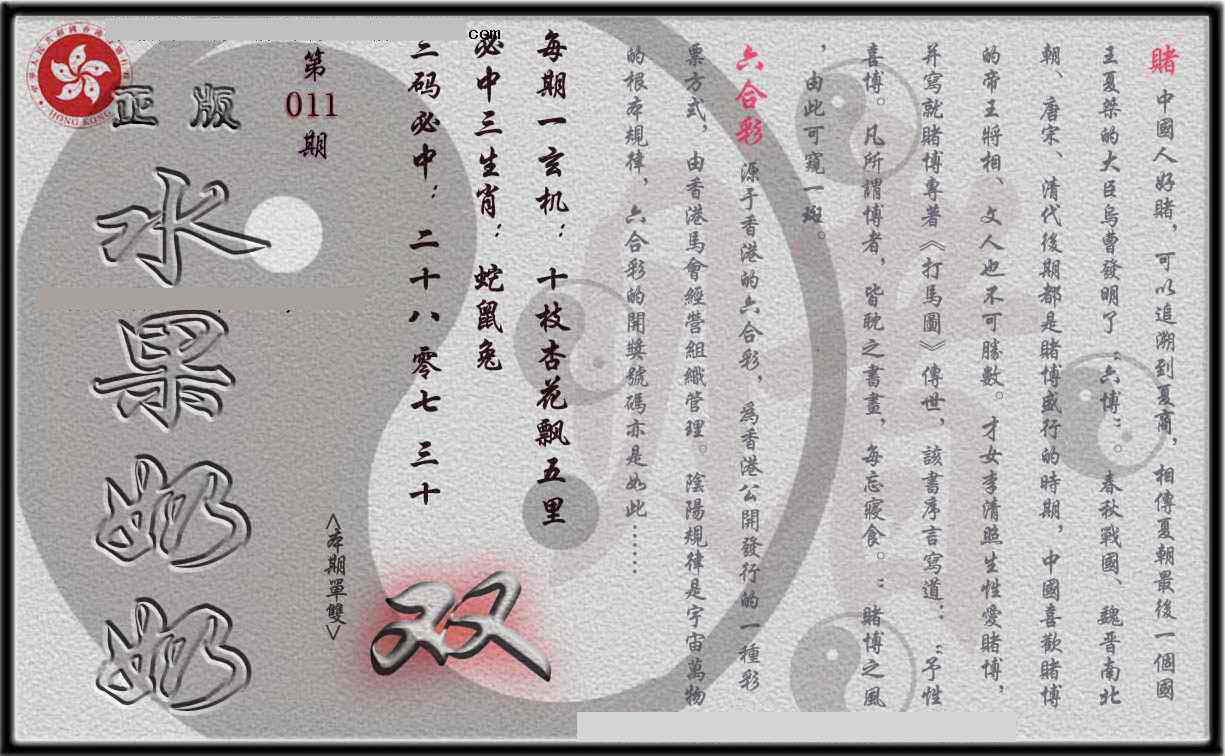 賭 中國人好賭，可以追溯到夏商，相傳夏朝最後一個國
王夏桀的大臣烏曹發明了“六博”。春秋戰國、魏晋南北
朝、唐宋、清代後期都是賭博盛行的時期，中國喜歡賭博
的帝王將相、文人也不可勝數。才女李清照生性愛賭博，
并寫就賭博專著《打馬圖》傳世，該書序言寫道：“予性
喜博。凡所謂博者，皆耽之晝畫，每忘寢食。：賭博之風
，由此可窺一斑。
六合彩 源于香港的六合彩，為香港公開發行的一種彩
票方式，由香港馬會經營組織管理。陰陽規律是宇宙萬物
的根本規律，六合彩的開獎號碼亦是如此……
每期一玄机：十枝杏花飘五里
必中三生肖：蛇鼠兔
三码必中：二十八 零七 三十
com
第
011
期
<本期單雙>
双
正版
水果奶奶
HONG KONG